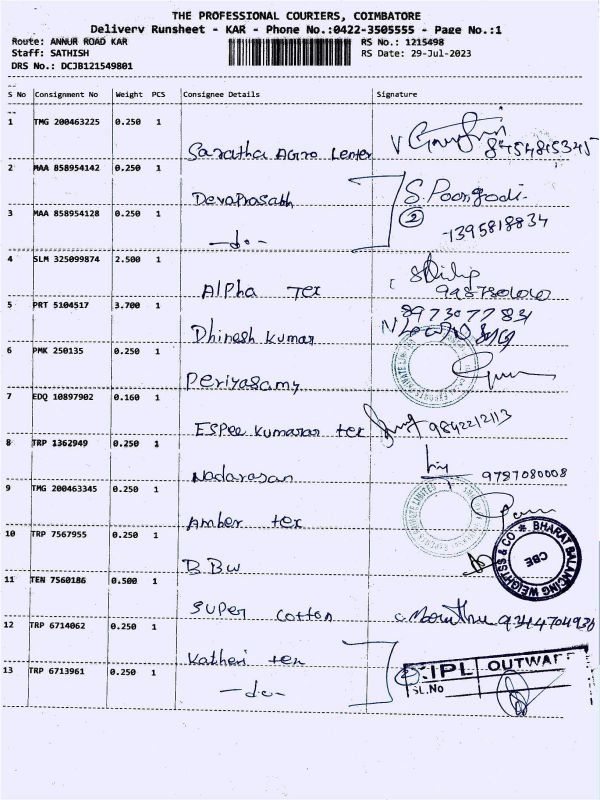 THE PROFESSIONAL COURIERS, COIMBATORE
Delivery Runsheet - KAR - Phone No.:0422-3505555 - Page No.:1
Route: ANNUR ROAD KAR RS No.: 1215498
Staff: SATHISH RS Date: 29-Jul-2023
DRS No.: DCJB121549801
S No Consignment No Weight PCS Consignee Details Signature
1 TMG 200463225 0.250 1
Saratha Agro Center 8454815345
2 MAA 858954142 0.250 1
Devaprasath S. Poongodi.
3 MAA 858954128 0.250 1 2
-do- -1395818834
4 SLM 325099874 2.500 1
Alpha Tex
5 PRT 5104517 3.700 1 8973077831
Dhinesh Kumar
6 PMK 250135 0.250 1
Periyasamy
7 EDQ 10897902 0.160 1
Espee Kumaran tex 9842212113
8 TRP 1362949 0.250 1
Nadarasan 9787080008
9 TMG 200463345 0.250 1
Amber tex
10 TRP 7567955 0.250 1
B.B.W
BHARAT BALANCING WEIGHTSS & CO
CBE
11 TEN 7560186 0.500 1
Super Cotton 9344704938
12 TRP 6714062 0.250 1
Katheri tex
13 TRP 6713961 0.250 1 2 IPL OUTWAR
-do- SL.No